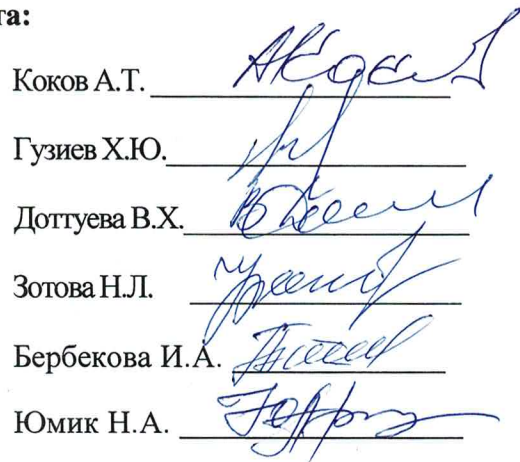 та:
Коков А.Т.
Гузиев Х.Ю.
Доттуева В.Х.
Зотова Н.Л.
Бербекова И.А.
Юмик Н.А.